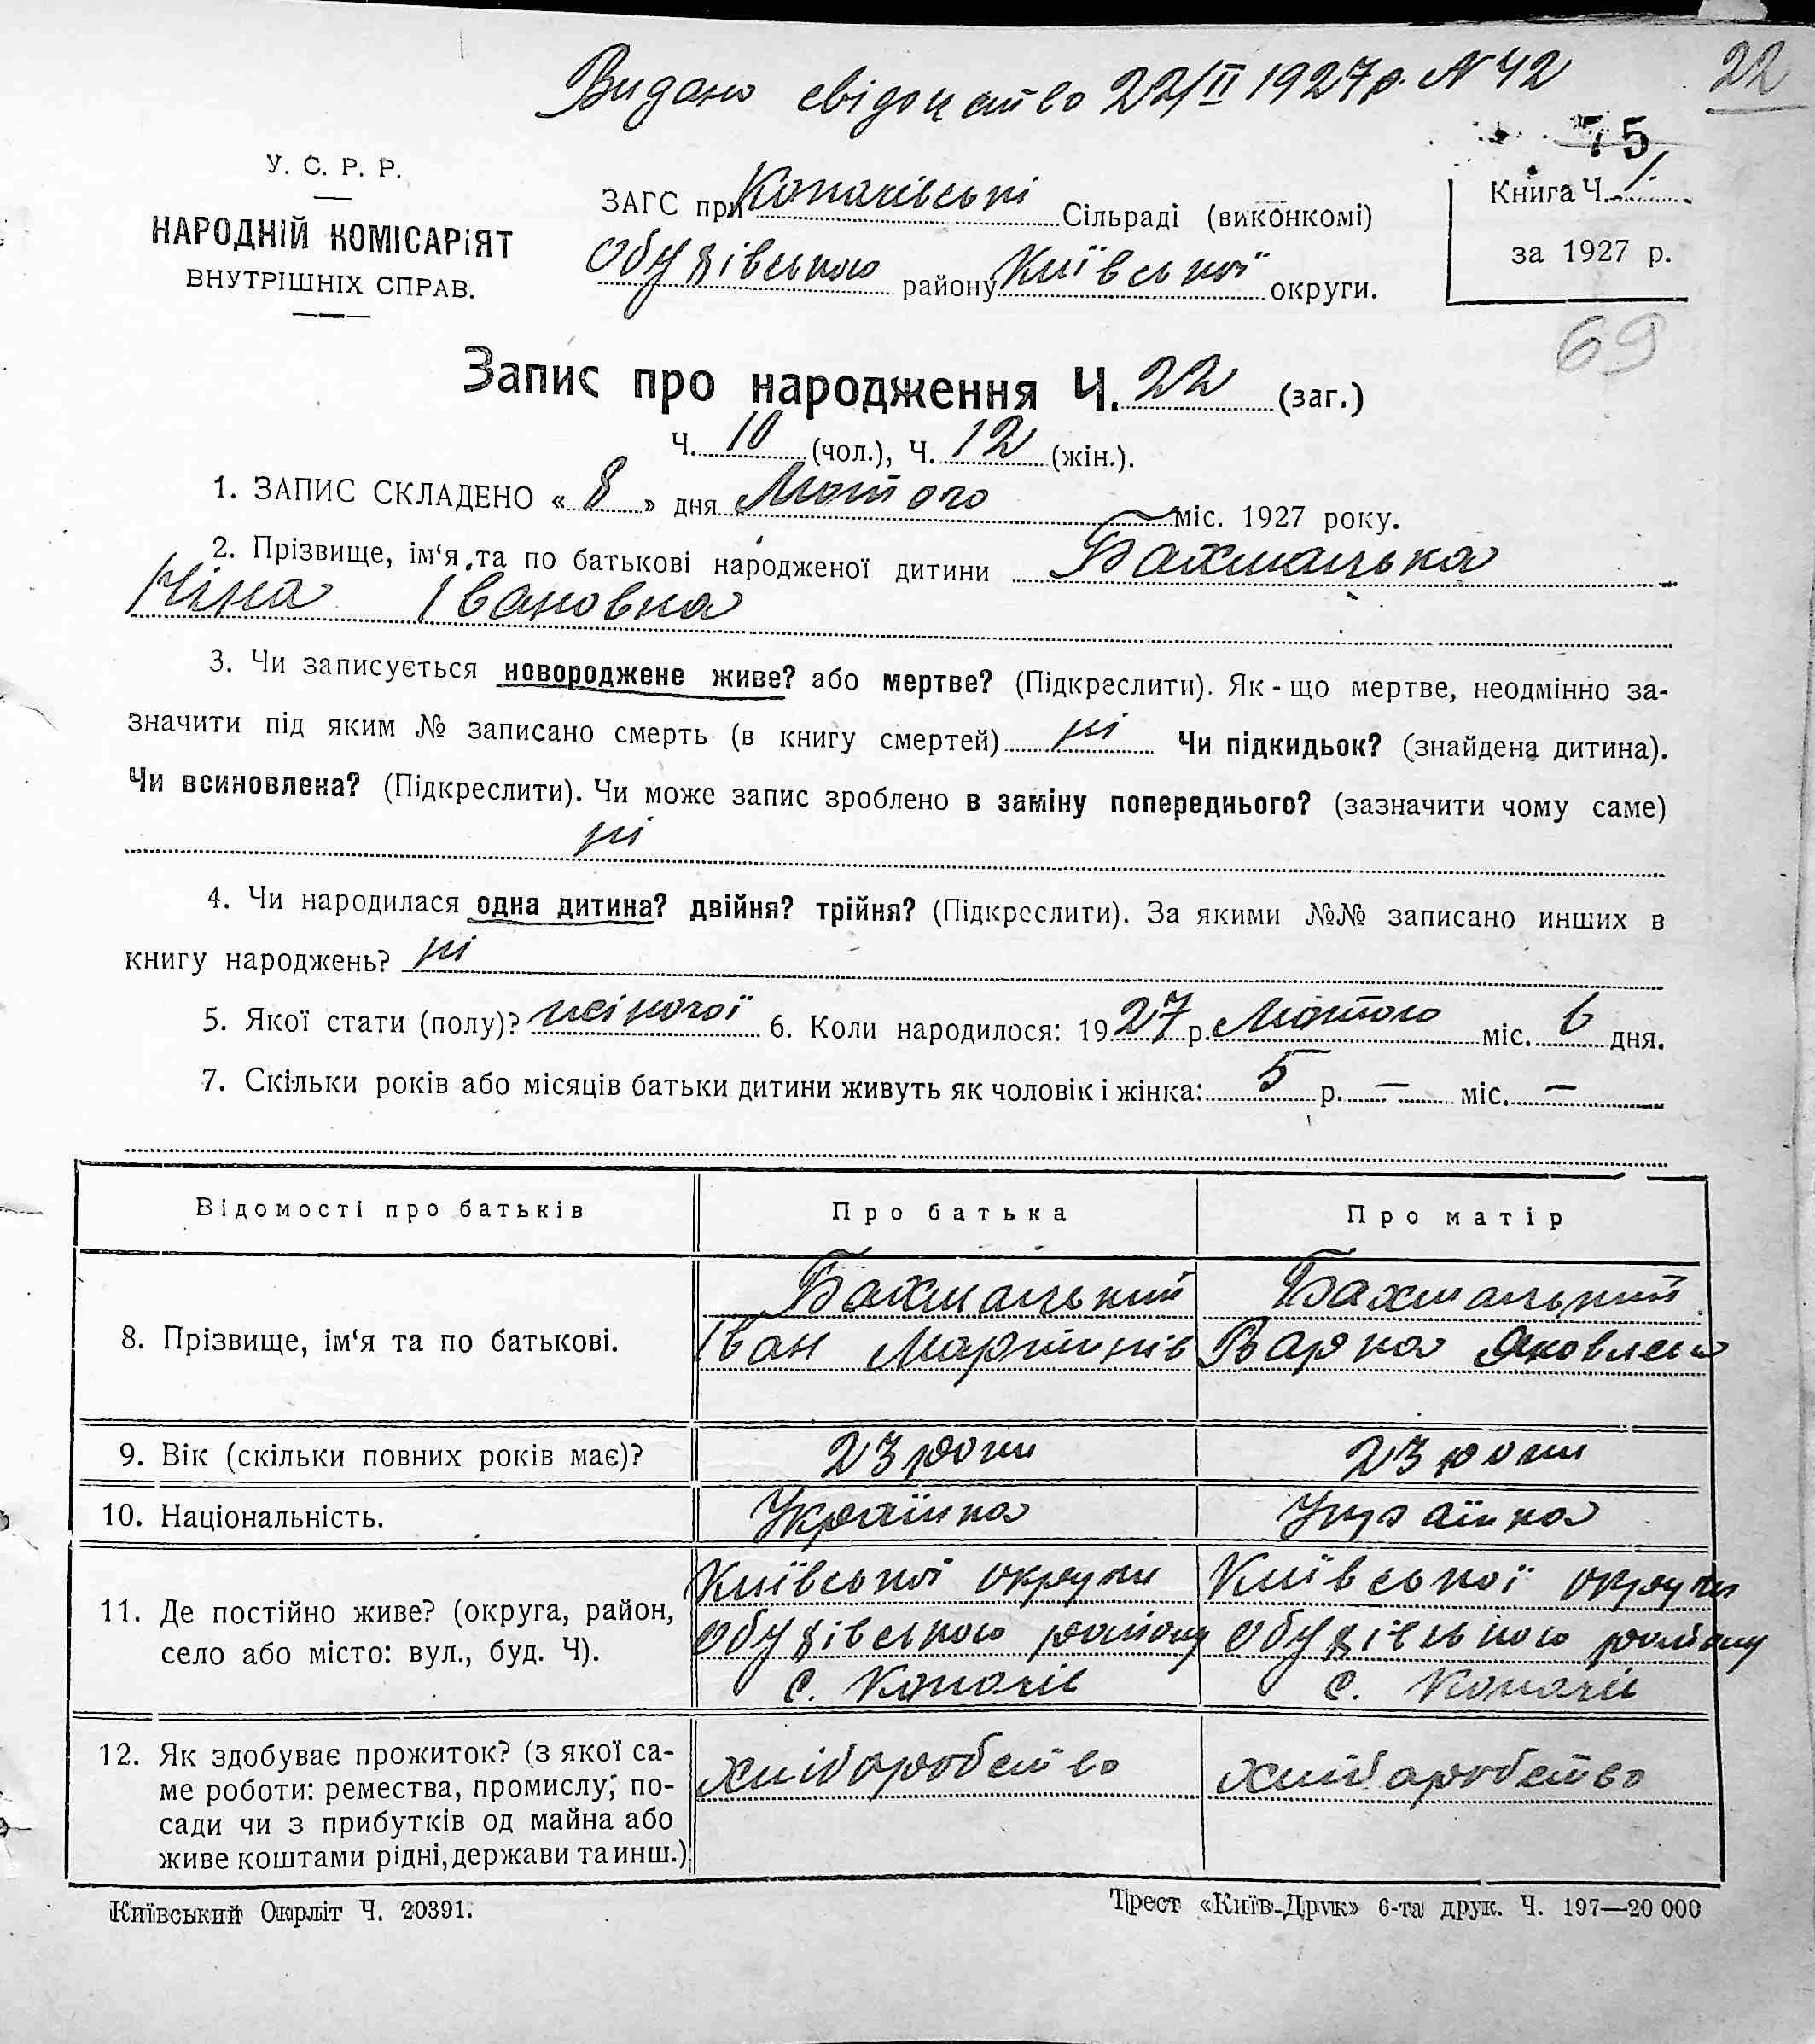 22
Видано свідоцтво 22/II 1927р. N 42
75
У. С. Р. Р.
НАРОДНІЙ КОМІСАРІЯТ
ВНУТРІШНІХ СПРАВ.
ЗАГС при Копачівські Сільраді (виконкомі)
Обухівського району Київської округи.
Книга Ч. 1.
за 1927 р.
69
Запис про народження Ч. 22 (заг.)
Ч. 10 (чол.), Ч. 12 (жін.).
1. ЗАПИС СКЛАДЕНО « 8 » дня Лютого міс. 1927 року.
2. Прізвище, ім‘я та по батькові народженої дитини Бахмацька
Ніна Івановна
3. Чи записується новороджене живе? або мертве? (Підкреслити). Як-що мертве, неодмінно за-
значити під яким № записано смерть (в книгу смертей) ні Чи підкидьок? (знайдена дитина).
Чи всиновлена? (Підкреслити). Чи може запис зроблено в заміну попереднього? (зазначити чому саме)
ні
4. Чи народилася одна дитина? двійня? трійня? (Підкреслити). За якими №№ записано инших в
книгу народжень? ні
5. Якої стати (полу)? жіночої 6. Коли народилося: 1927 р. Лютого міс. 6 дня.
7. Скільки років або місяців батьки дитини живуть як чоловік і жінка: 5 р. — міс. —
Відомості про батьків Про батька Про матір
8. Прізвище, ім‘я та по батькові.
Бахмацький
Іван Мартинів
Бахмацький
Варка Яковлева
9. Вік (скільки повних років має)? 23 роки 23 роки
10. Національність. Українка Українка
11. Де постійно живе? (округа, район,
село або місто: вул., буд. Ч).
Київської округи
Обухівського району
с. Копачів
Київської округи
Обухівського району
с. Копачів
12. Як здобуває прожиток? (з якої са-
ме роботи: ремества, промислу, по-
сади чи з прибутків од майна або
живе коштами рідні, держави та инш.)
хліборобство
хліборобство
Київський Окрліт Ч. 20391.
Трест «Київ-Друк» 6-та друк. Ч. 197—20 000